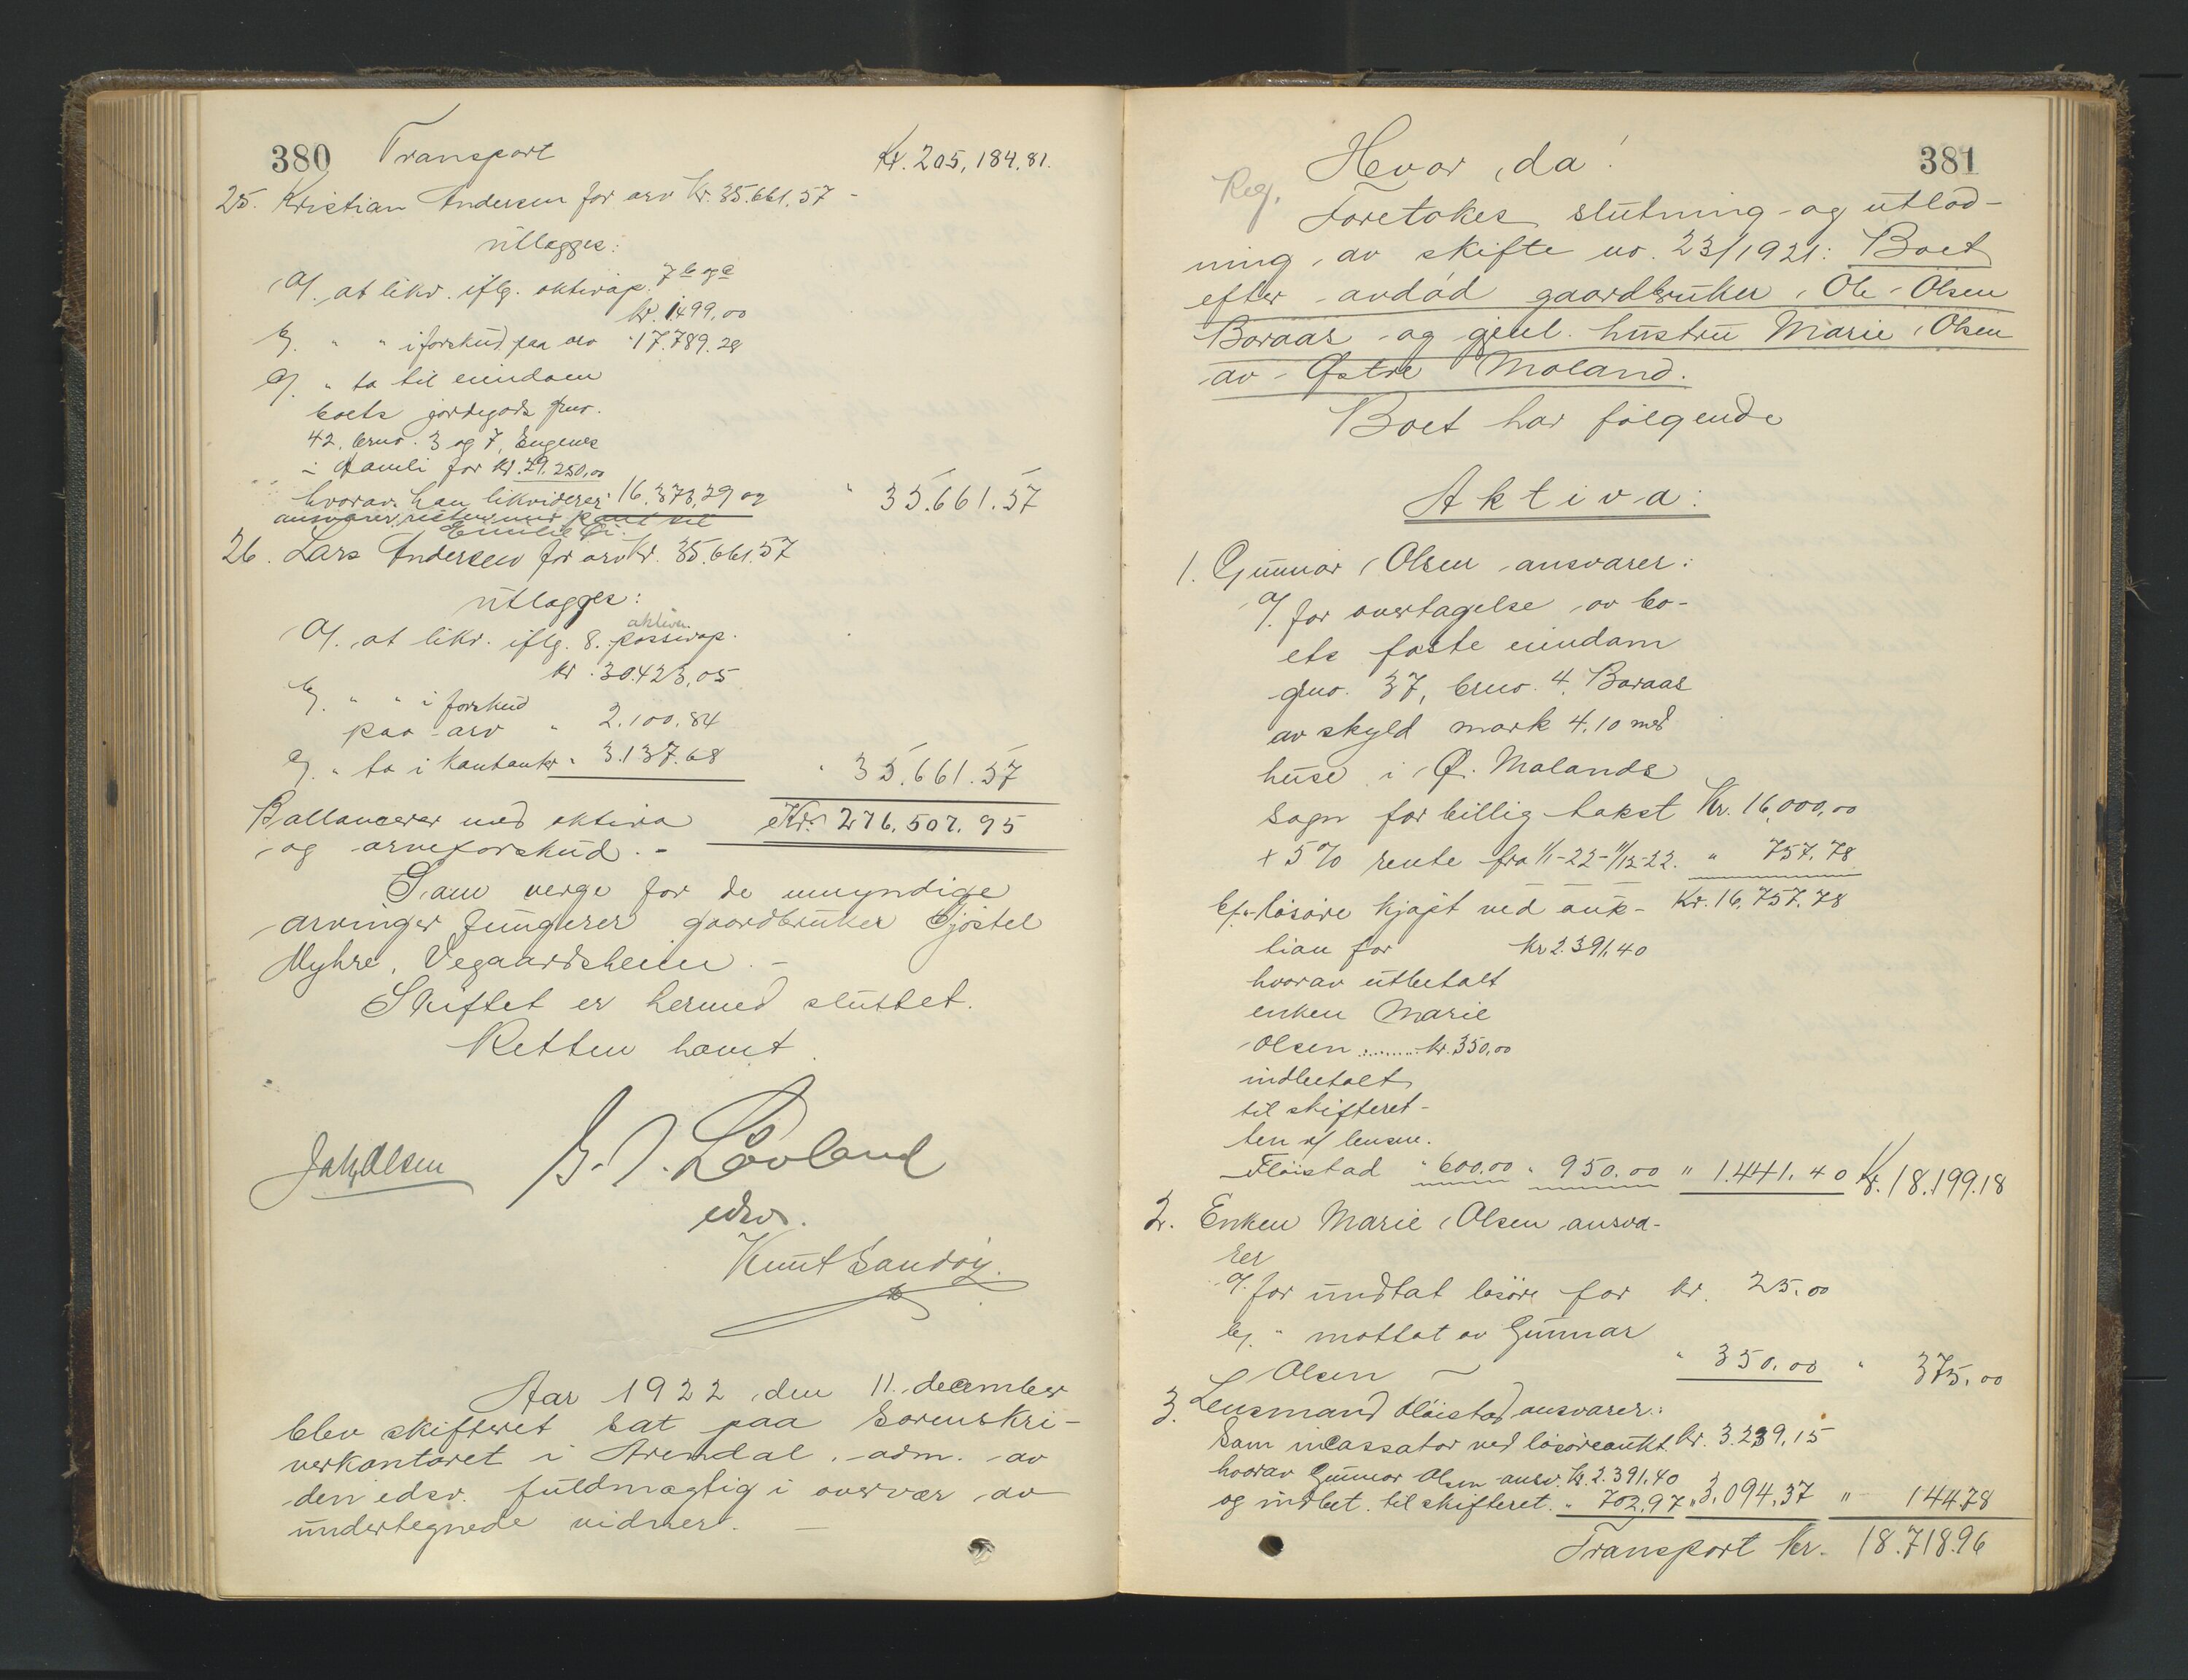 380 Transport Kr. 205,184.81.
25. Kristian Andersen for arv Kr. 35.661.57 -
utlægges:
a/. at likv. iflg. aktivap. 7 b og c
kr. 1499,00
b/. " " i forskud paa arv " 17.789.28
c/. " ta til eiendom
boets jordegods gno.
42, bruo. 3 og 7, Engenes
i Aamli for kr. 29.250,00
hvorav han likviderer " 16.373,29 og " 35.661.57
26. Lars Andersen for arv Kr. 35.661.57
utlægges:
aktiva
a/. at likv. iflg. 8. passivap.
kr. 30.423,05
b/. " " i forskud
paa arv " 2.100.84
c/. " ta i kontanter " 3.137.68 " 35.661.57
Ballancerer med aktiva Kr. 276.507.95
og arveforskud. -
Som verge for de umyndige
arvinger fungerer gaardbruker Gjøstel
Myhre, Vegaardsheien. -
Skiftet er hermed sluttet.
Retten hævet.
Joh. Olsen G. J. Løvland
edsv.
Knut Sandøy.
Aar 1922 den 11. december
blev skifteret sat paa sorenskri-
verkontoret i Arendal. adm. av
den edsv. fuldmægtig i overvær av
undertegnede vidner. -
381
Reg.
Hvor da!
Foretokes slutning og utlod-
ning av skifte no. 23/1921: Boet
efter avdød gaardbruker Ole Olsen
Boraas og gjenl. hustru Marie Olsen
av Østre Moland.
Boet har følgende
Aktiva:
1. Gunnar Olsen ansvarer:
a/. for overtagelse av bo-
ets faste eiendom
gno. 37, bruo. 4, Boraas
av skyld mark 4,10 med
huse i Ø. Molands
sogn for billig takst Kr. 16,000,00
+ 5% rente fra 1/1-22-11/12-22. " 757.78
Kr. 16,757.78
b/. løsøre kjøpt ved auk-
tion for kr 2.391,40
hvorav utbetalt
enken Marie
Olsen ......... kr. 350,00
indbetalt
til skifteret-
ten v/ lensm.
Fløistad " 600.00 " 950.00 " 1.441.40 Kr. 18.199.18
2. Enken Marie Olsen ansva-
rer
a/. for undtat løsøre for kr. 25.00
b/. " mottat av Gunnar
Olsen " 350.00 " 375,00
3. Lensmand Fløistad ansvarer:
Som incassator ved løsøreaukt. kr. 3.239,15
hvorav Gunnar Olsen ansv. kr. 2.391,40
og indbet. til skifteret. " 702,97 " 3,094,37 " 144.78
Transport kr. 18.718.96